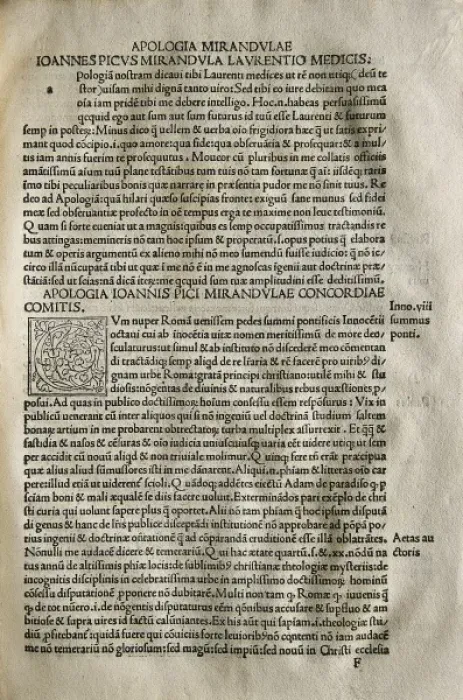 APOLOGIA MIRANDVLAE
IOANNES PICVS MIRANDVLA LAVRENTIO MEDICIS:
Pologiā nostram dicaui tibi Laurenti medices ut rē non utiq; (deū te
a
stor) quisam mihi dignā tanto uiro: Sed tibi eo iure debitam quo mea
oīa iam pridē tibi me debere intelligo. Hoc.n.habeas persuasissimū
qcquid ego aut sum aut sum futurus id tuū esse Laurenti & futurum
semp in posteȝ: Minus dico q̄ uellem & uerba oīo frigidiora hæc q̄ ut satis expri
mant quod cōcipio.i.quo amore: qua fide: qua obseruātia & prosequar: & a mul/
tis iam annis fuerim te prosequutus. Moueor cū pluribus in me collatis officiis
amātissimū aīum tuū plane testātibus tum tuis nō tam fortunæ q̄ aīi: iisdēq; raris
īmo tibi peculiaribus bonis quæ narrare in præsentia pudor me nō sinit tuus. Re
deo ad Apologiā: quā hilari quæso suscipias fronte: exiguū sane munus sed fidei
meæ sed obseruantiæ profecto in oē tempus erga te maxime non leue testimoniū.
Quam si forte eueniat ut a magnis: quibus es semp occupatissimus tractandis re
bus attingas: memineris nō tam hoc ipsum & properatū.s.opus potius q̄ elabora
tum & operis argumentū ex alieno mihi nō meo sumendū fuisse iudicio: q̄ nō ic/
circo illā nūcupatā tibi ut quæ ī me nō ē in me agnoscas īgenii aut doctrinæ præ/
stātia: sed ut scias: nā dicā iteȝ: me qcquid sum tuæ amplitudini esse deditissimū.
APOLOGIA IOANNIS PICI MIRANDVLAE CONCORDIAE
COMITIS.
Inno.viii
summus
ponti.
CVm nuper Romā uenissem pedes summi pontificis Innocētii
octaui cui ab inocētia uitæ nomen meritissimū de more deo/
sculaturus: ut simul & ab instituto nō discederē meo cōmentan
di tractādiq; semp aliqd de re lraria & rē facerē pro uirib9 di/
gnam urbe Roma: gratā principi christiano: utilē mihi & stu
diosis: nōgentas de diuinis & naturalibus rebus quæstiones p/
posui. Ad quas in publico doctissimoȝ hoīum consessu essem respōsurus: Vix in
publicū uenerant cū inter aliquos qui si nō ingeniū uel doctrinā studium saltem
bonaȝ artium in me probarent obtrectatoȝ turba multiplex assurrexit. Et q̄q̄ &
fastidia & nasos & cēsuras & oīo iudicia uniuscuiusq; uaria cēt uidere utiq; ut sem
per accidit cū nouū aliqd & non triuiale molimur. Quinq; fere tñ erāt præcipua
quæ alius aliud sūmussores isti in me dānarent. Aliqui.n.phiam & litteras oīo car
perēt illud etiā ut uiderenē scioli. Quādoq; addētes eiectū Adam de paradiso q̄ p
sciam boni & mali æqualē se diis facere uoluit. Exterminādos pari exēplo de chri
sti curia qui uolunt sapere plus q̄ oportet. Alii nō tam phiam q̄ hoc ipsum disputā
di genus & hanc de lris publice disceptādi institutionē nō approbare ad pōpā po/
tius ingenii & doctrinæ oñtationē q̄ ad cōparandā eruditionē esse illā oblatrātes.
Nōnulli me audacē dicere & temerariū. Qui hac ætate quartū.f.&.xx.nōdū na
Aetas au
ctoris
tus annū de altissimis phiæ locis: de sublimib9 christianæ theologiæ mysteriis: de
incognitis disciplinis in celebratissima urbe in amplissimo doctissimoȝ hominū
cōsessu disputationē pponere nō dubitarē. Multi non tam q̄ Romæ q̄ iuuenis q̄
q̄ de tot nūero.i.de nōgentis disputaturus eēm qōnibus accusare & supfluo & am
bitiose & supra uires id factū caluniantes. Ex his aūt qui sapiam.i.theologiæ stu/
diū psitebanē: quidā fuere qui cōuiciis forte leuiorib9 nō cōtenti nō iam audacē
me nō temerariū nō gloriosum: sed magū: sed impiū: sed nouū in Christi ecclesia
F